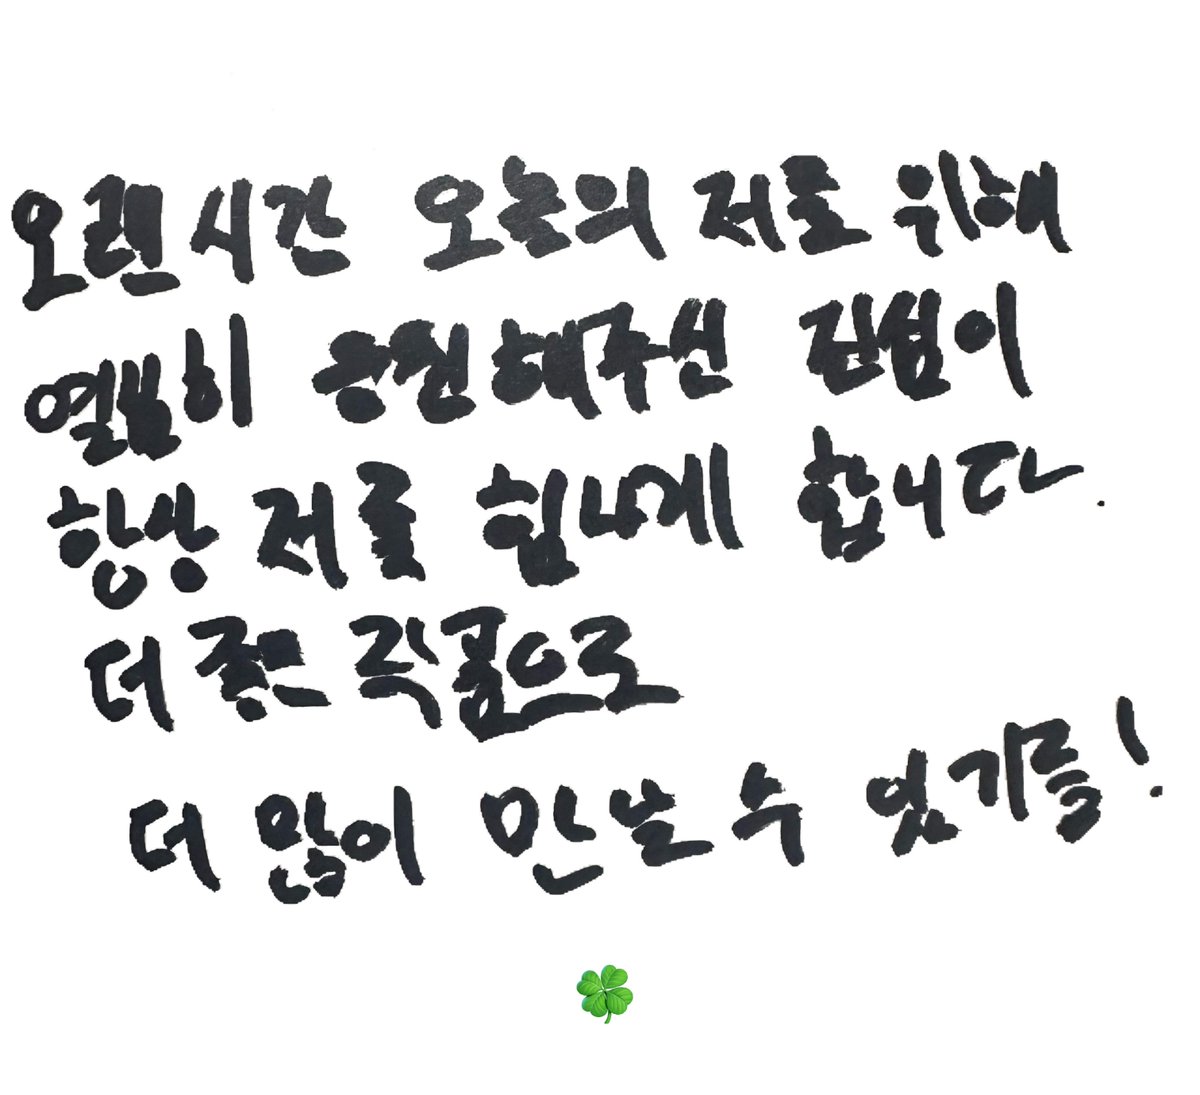 오랜시간 오늘의 저를 위해
열심히 응원해주신 진심이
항상 저를 힘나게 합니다.
더 좋은 작품으로
더 많이 만날 수 있기를!